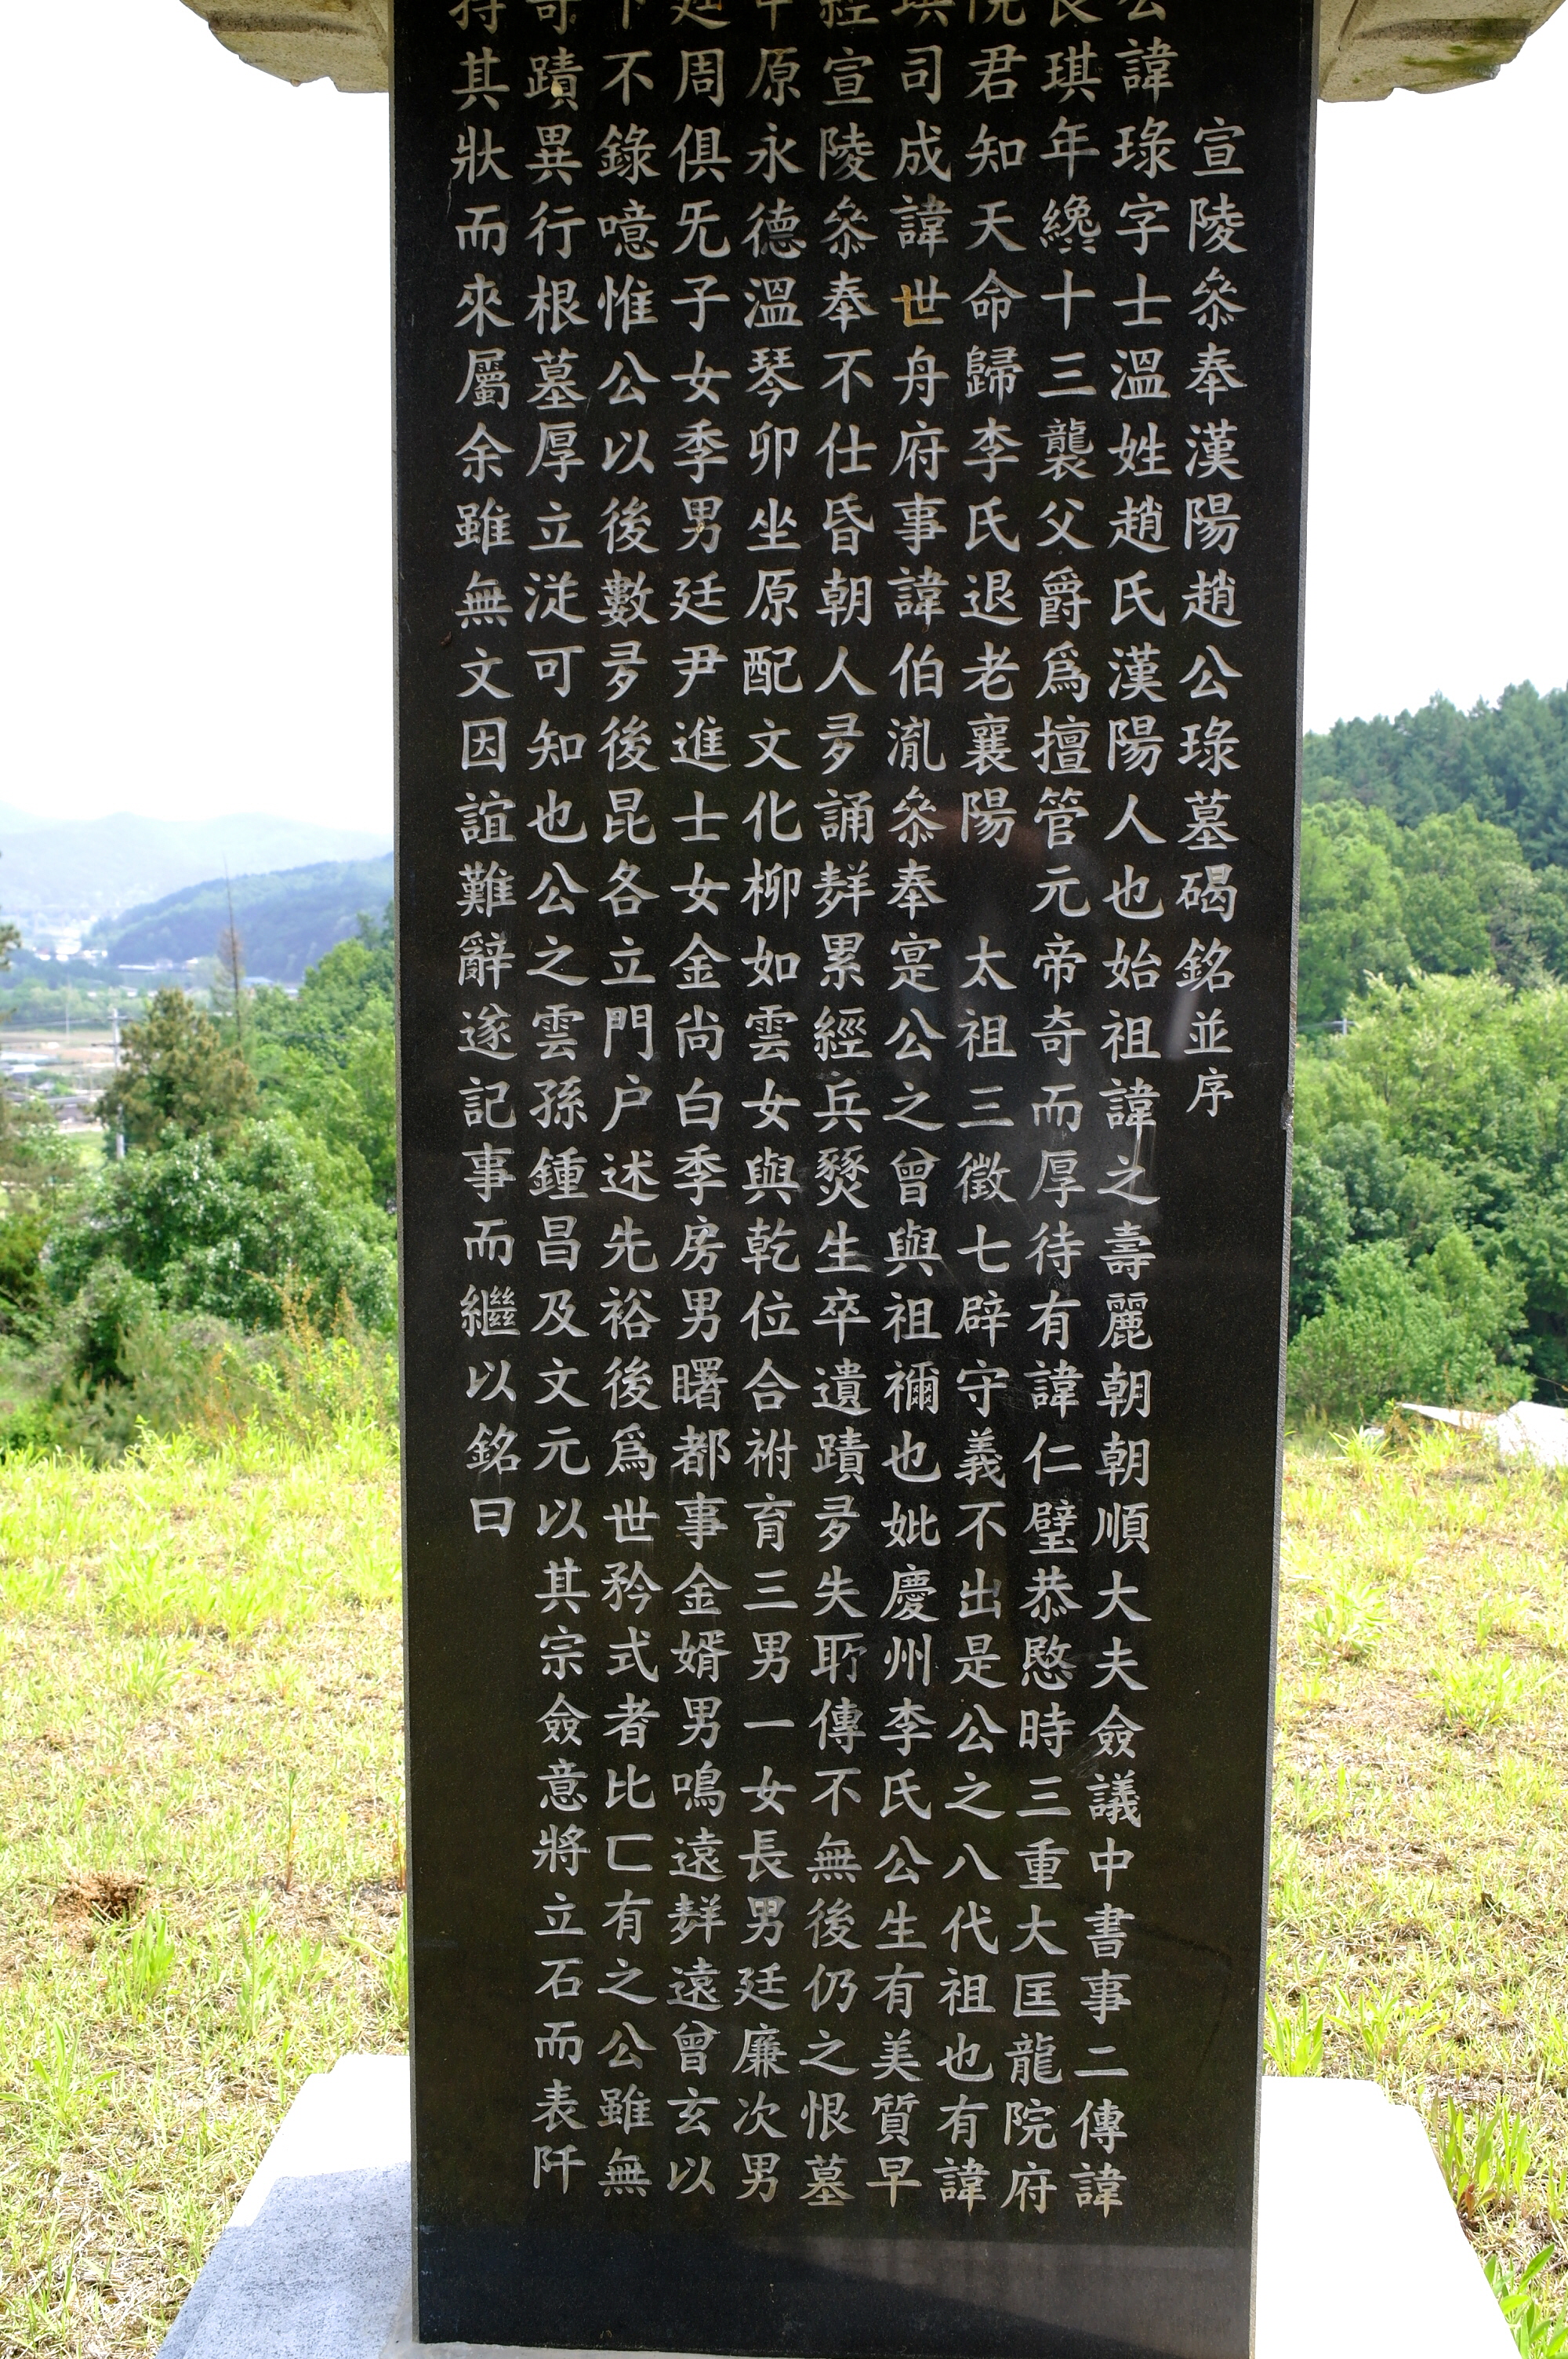 宣陵叅奉漢陽趙公琭墓碣銘並序
公諱琭字士溫姓趙氏漢陽人也始祖諱之壽麗朝朝順大夫僉議中書事二傳諱
良琪年纔十三襲父爵爲擅管元帝奇而厚待有諱仁璧恭愍時三重大匡龍院府
院君知天命歸李氏退老襄陽 太祖三徵七辟守義不出是公之八代祖也有諱
司成諱世舟府事諱伯胤叅奉寔公之曾與祖禰也妣慶州李氏公生有美質早
經宣陵叅奉不仕昏朝人多誦䍧累經兵燹生卒遺蹟多失聅傳不無後仍之恨墓
中原永德溫琴卯坐原配文化柳如雲女與乾位合祔育三男一女長男廷廉次男
廷周俱无子女季男廷尹進士女金尚白季房男曙都事金婿男鳴遠䍧遠曾玄以
下不錄噫惟公以後數多後昆各立門户述先裕後爲世矜式者比匸有之公雖無
奇蹟異行根墓厚立㳂可知也公之雲孫鍾昌及文元以其宗僉意將立石而表阡
持其狀而來屬余雖無文因誼難辭遂記事而繼以銘曰